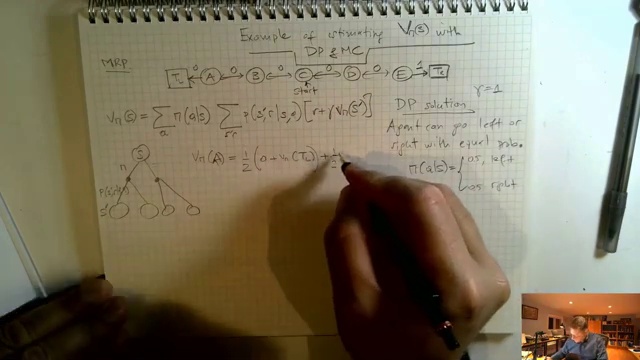 Example of estimating Vπ(s) with
DP & MC
MRP
TL 0 A 0 B 0 C 0 D 0 E 1 TR
Start
Vπ(s) = Σa π(a|s) Σs'r p(s',r|s,a) [r+γVπ(s')]
DP solution γ=1
Agent can go left or
right with equal prob.
π(a|s) = { 0.5, left
0.5 right
S
Vπ(A) = 1/2 (0 + Vπ(TL)) + 1/2
π
S'